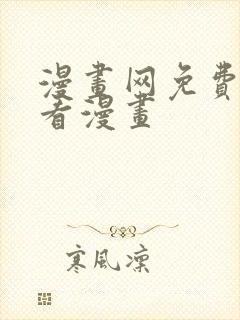 漫畫网免費
看漫畫
寒風凜